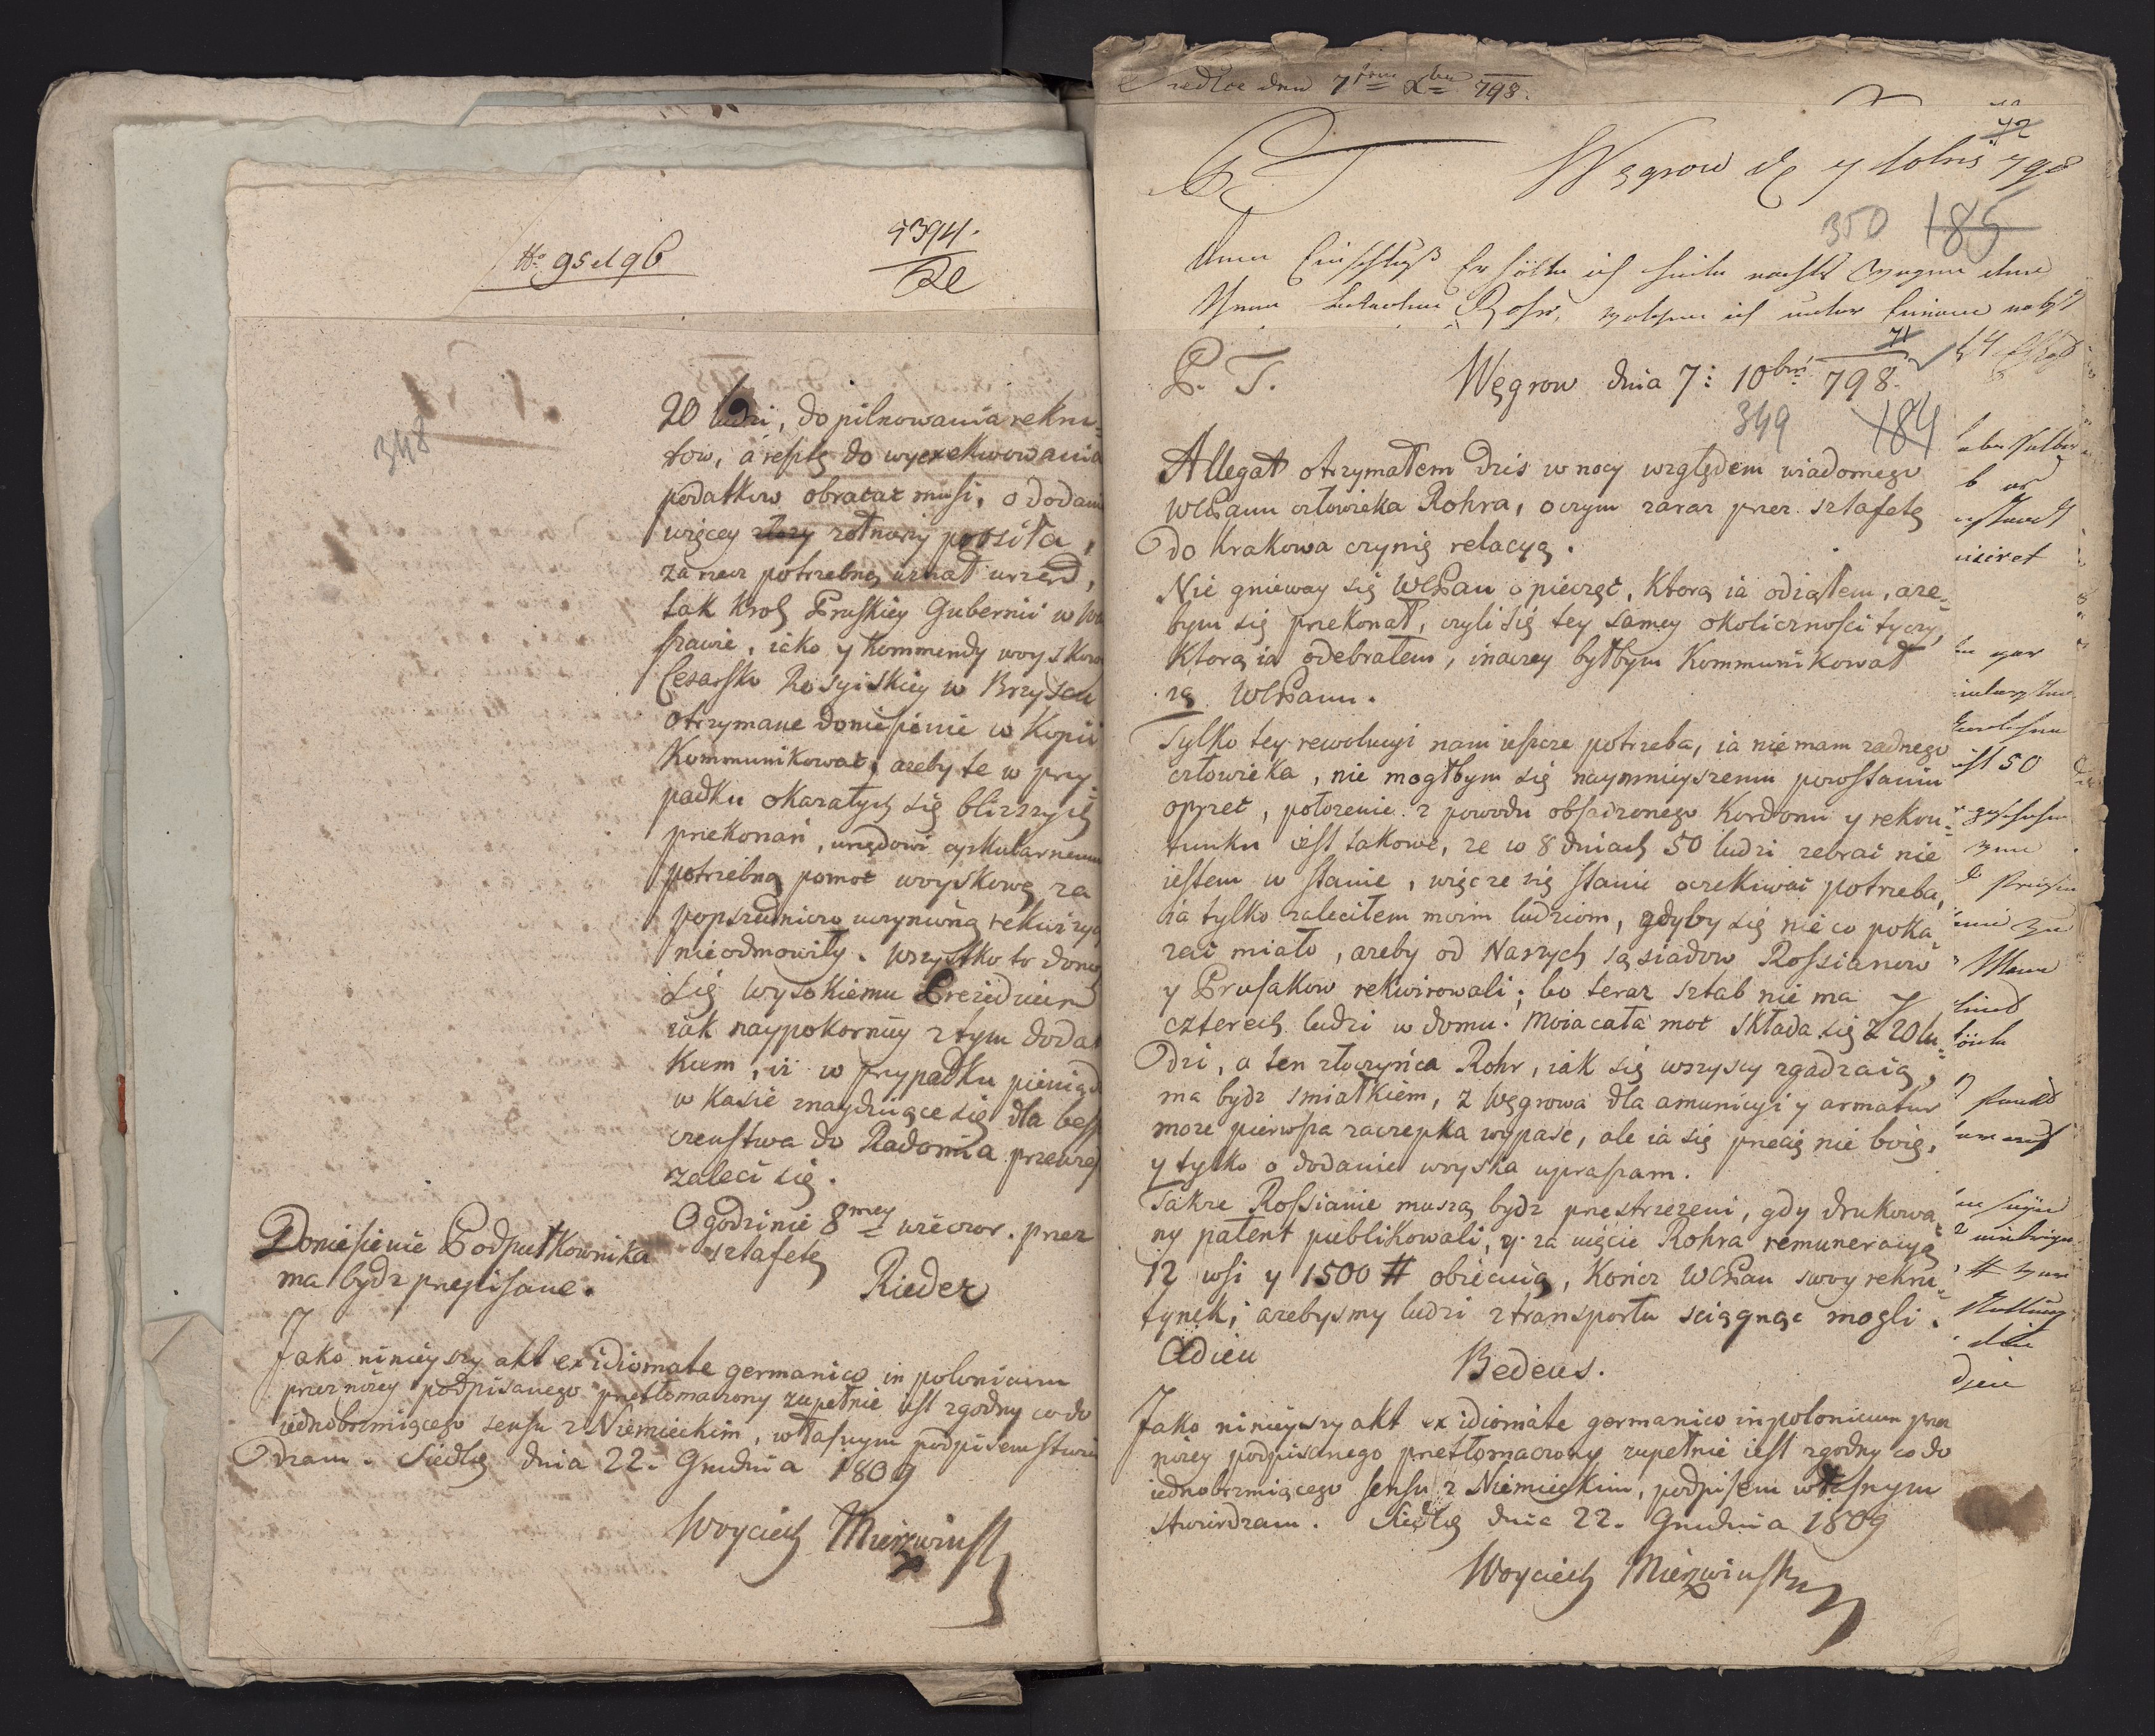 No 95 et 96
9394.
348
20 ludzi, do pilnowania rekru=
tow, a resztę do wyexekwowania
podatkow obracac musi, o dodani
więcey zołnierzy prosiła,
za rzecz potrzebną uznał urząd,
tak Krolę Pruskiey Gubernii w Wa
szawie, iako y Kommendy woyskow
Cesarsko Rosyiskiey w Brzyscu
otrzymane doniesienie w Kopii
Kommunikowac, azeby te w przy=
padku okazałych się bliższych
przekonań, urzędowi cyrkularnemu
potrzebną pomoc woyskową za
poprzedniczo uczynioną rekwizyc
nieodmowiły. Wszystko to donosi
się wysokiemu Prezidium
iak naypokorniey z tym dodat
kiem, iż w przypadku pieniądz
w kasie znayduiące się dla besp
czeństwa do Radomia przewieść
zaleci się.
O godzinie 8mey wieczor. przez
sztafetę
Rieder
Doniesienie Podpułkownika
ma bydz przepisane.
Jako ninieyszy akt ex idiomate germanico in polonicum
przez niżey podpisanego przetłomaczony zupełnie iest zgodny co do
iednobrzmiącego sensu z Niemieckim, własnym podpisem stwier
dzam. Siedlce dnia 22. Grudnia 1809
Woyciech Mierzwinski
Siedlce den 7ten Xber 798.
72
Węgrow d 7 Xbris 798
350 185
Einschluß Erhielte ich heute nachts wegen
Rohr, welchen ich unter
P. T.
71
Węgrow dnia 7: 10bris 798.
349 184
Allegat otrzymałem dzis w nocy względem wiadomego
WCPanu człowieka Rohra, o czym zaraz przez sztafetę
do Krakowa czynię relacyą.
Nie gnieway się WCPan o pieczęć, Ktorą ia odiąłem, aze=
bym się przekonał, czyli się tey samey okoliczności tyczy,
Ktorą ia odebrałem, inaczey byłbym Kommunikował
ią WCPanu.
Tylko tey rewolucyi nam ieszcze potrzeba, ia nie mam żadnego
człowieka, nie mogłbym się naymnieyszemu powstaniu
oprzec, położenie z powodu obsadzonego Kordonu y rekru=
tunku iest takowe, ze w 8 dniach 50 ludzi zebrać nie
iestem w stanie, więc ze się stanie oczekiwać potrzeba,
ia tylko zaleciłem moim ludziom, gdyby się nieco poka=
zać miało, azeby od Naszych Sąsiadow Rossianow
y Prusakow rekwirowali; bo teraz sztab nie ma
czterech ludzi w domu. Moia cała moc składa się z 20 lu=
dzi, a ten złoczyńca Rohr, iak się wszyscy zgadzaią,
ma bydz smiałkiem, z Węgrowa dla amunicyi y armatur
może pierwsza zaczepka wypasc, ale ia się przecię nie boię,
y tylko o dodanie woyska upraszam.
Także Rossianie muszą bydz przestrzeżeni, gdy drukowa=
ny patent publikowali, y za ujęcie Rohra remuneracyą
12 wsi y 1500 # obiecuią, Kończ WCPan swoy rekru=
tynek, azebysmy ludzi z transportu sciągnąć mogli.
Adieu
Bedeus.
Jako ninieyszy akt ex idiomate germanico in polonicum przez
niżey podpisanego przetłomaczony zupełnie iest zgodny co do
iednobrzmiącego sensu z Niemieckim, podpisem własnym
stwierdzam. Siedlce dnia 22. Grudnia 1809
Woyciech Mierzwinski